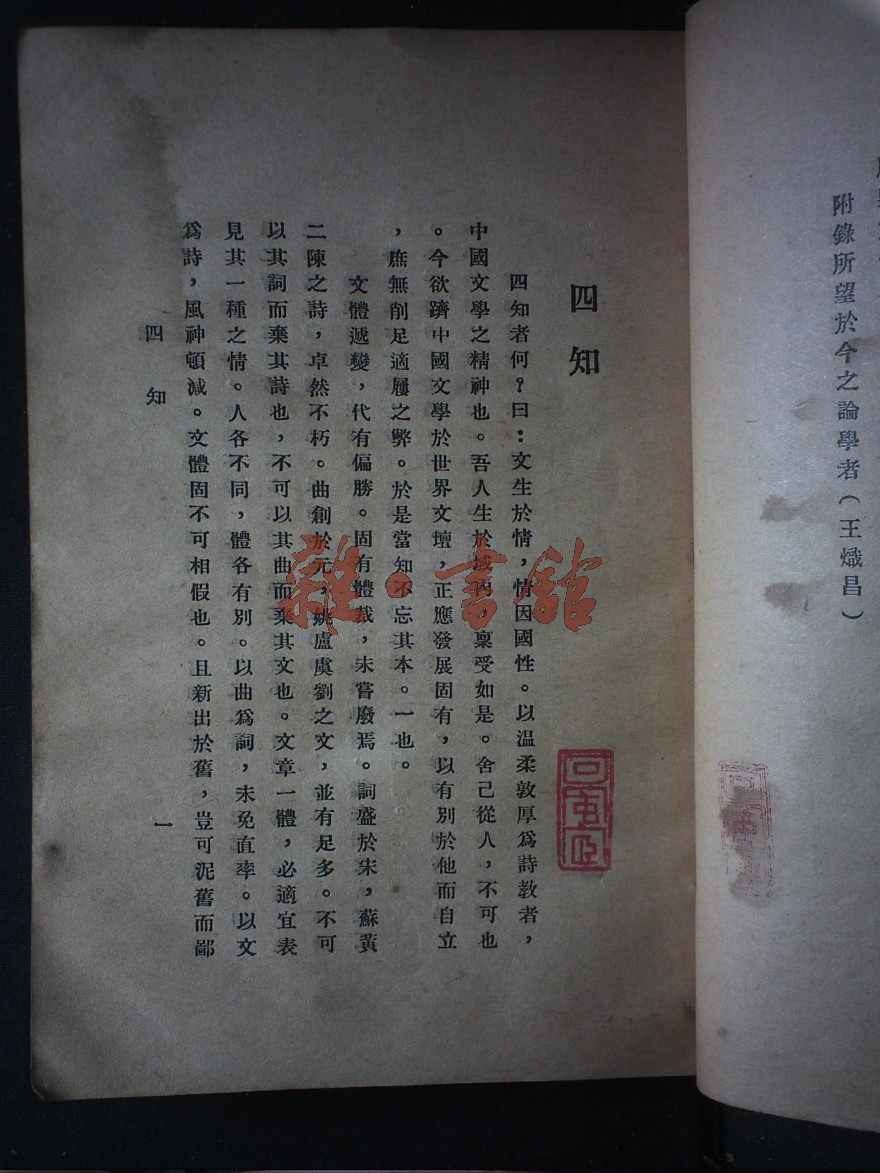 附錄所望於今之論學者（王熾昌）
四知
四知者何？曰：文生於情，情因國性。以温柔敦厚爲詩教者，
中國文學之精神也。吾人生於域內，稟受如是。舍己從人，不可也
。今欲躋中國文學於世界文壇，正應發展固有，以有別於他而自立
，庶無削足適屨之弊。於是當知不忘其本。一也。
文體遞變，代有偏勝。固有體裁，未嘗廢焉。詞盛於宋，蘇黃
二陳之詩，卓然不朽。曲創於元，姚盧虞劉之文，並有足多。不可
以其詞而棄其詩也，不可以其曲而棄其文也。文章一體，必適宜表
見其一種之情。人各不同，體各有別。以曲爲詞，未免直率。以文
爲詩，風神頓減。文體固不可相假也。且新出於舊，豈可泥舊而鄙
四知
一
雜·書館